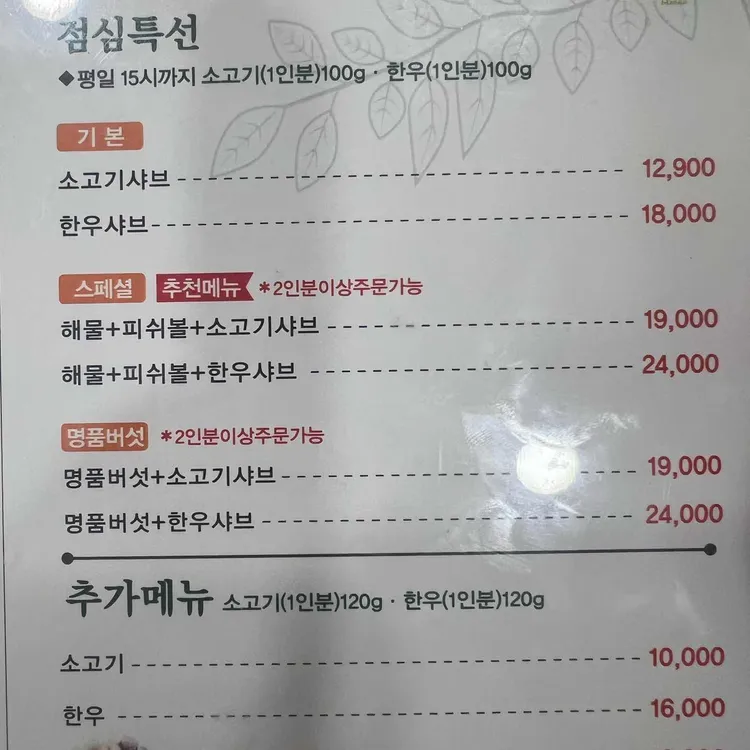 점심특선
◆평일 15시까지 소고기(1인분)100g · 한우(1인분)100g
기본
소고기샤브 12,900
한우샤브 18,000
스페셜 추천메뉴 *2인분이상주문가능
해물+피쉬볼+소고기샤브 19,000
해물+피쉬볼+한우샤브 24,000
명품버섯 *2인분이상주문가능
명품버섯+소고기샤브 19,000
명품버섯+한우샤브 24,000
추가메뉴 소고기(1인분)120g · 한우(1인분)120g
소고기 10,000
한우 16,000